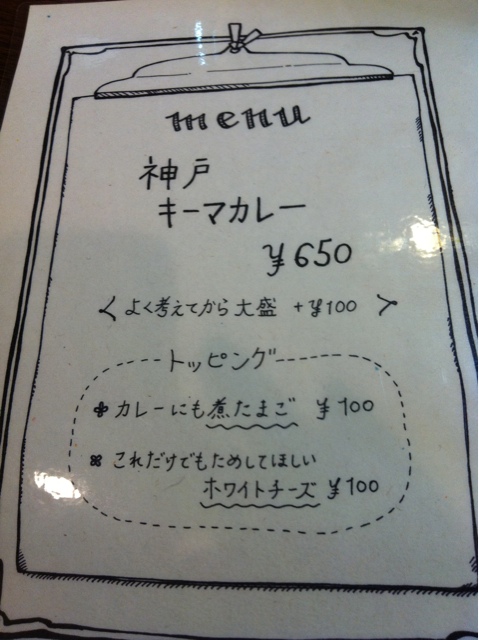 menu
神戸
キーマカレー
¥650
<よく考えてから大盛 +¥100>
トッピング
カレーにも煮たまご ¥100
これだけでもためしてほしい
ホワイトチーズ ¥100